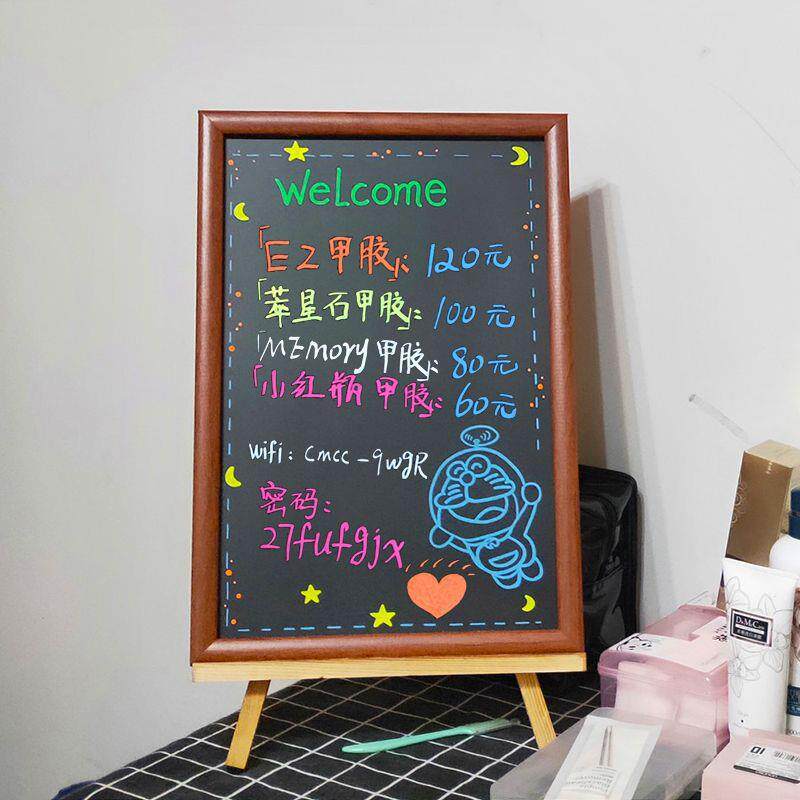 Welcome
「EZ甲胶」: 120元
「萃星石甲胶」: 100元
「MEmory甲胶」: 80元
「小红瓶甲胶」: 60元
wifi: cmcc-9wgR
密码:
27fufgjx
D.M.C.